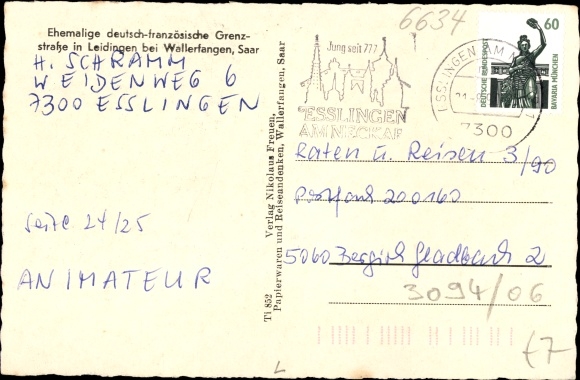 Ehemalige deutsch-französische Grenz-
straße in Leidingen bei Wallerfangen, Saar
H. SCHRAMM
WEIDENWEG 6
7300 ESSLINGEN
Seite 24/25
ANIMATEUR
Ti 852
Verlag Nikolaus Freuen,
Papierwaren und Reiseandenken, Wallerfangen, Saar
6634
Jung seit 777
ESSLINGEN
AM NECKAR
ESSLINGEN AM
7300
60
DEUTSCHE BUNDESPOST
BAVARIA MÜNCHEN
Raten u. Reisen 3/90
Postfach 200160
5060 Bergisch Gladbach 2
3094/06
£7